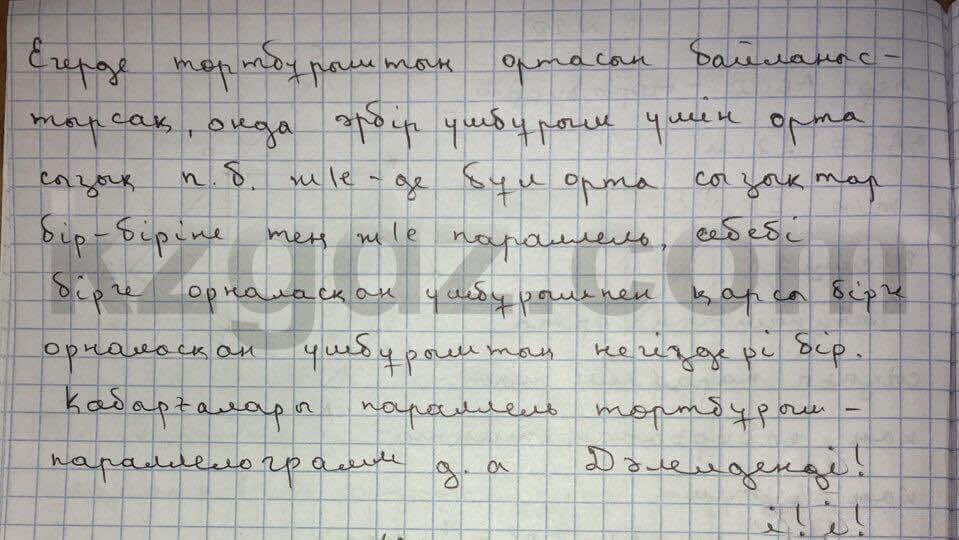 Егерде төртбұрыштың ортасын байланыс-
тырсақ, онда әрбір үшбұрыш үшін орта
сызық п.б. ж/е-де бұл орта сызықтар
бір-біріне тең ж/е параллель, себебі
бірге орналасқан үшбұрышпен қарсы бірге
орналасқан үшбұрыштың негіздері бір.
Қабарғалары параллель төртбұрыш -
параллелограмм д.а Дәлелденді!
і! і!
kzgdz.com